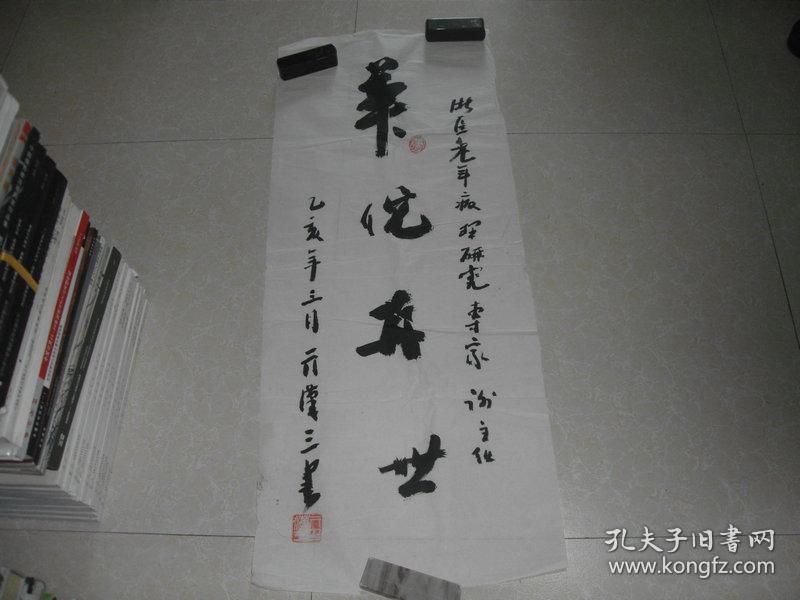 老年病理研究专家 主任
華佗再世
乙亥年三月 漢三书
孔夫子旧书网
www.kongfz.com